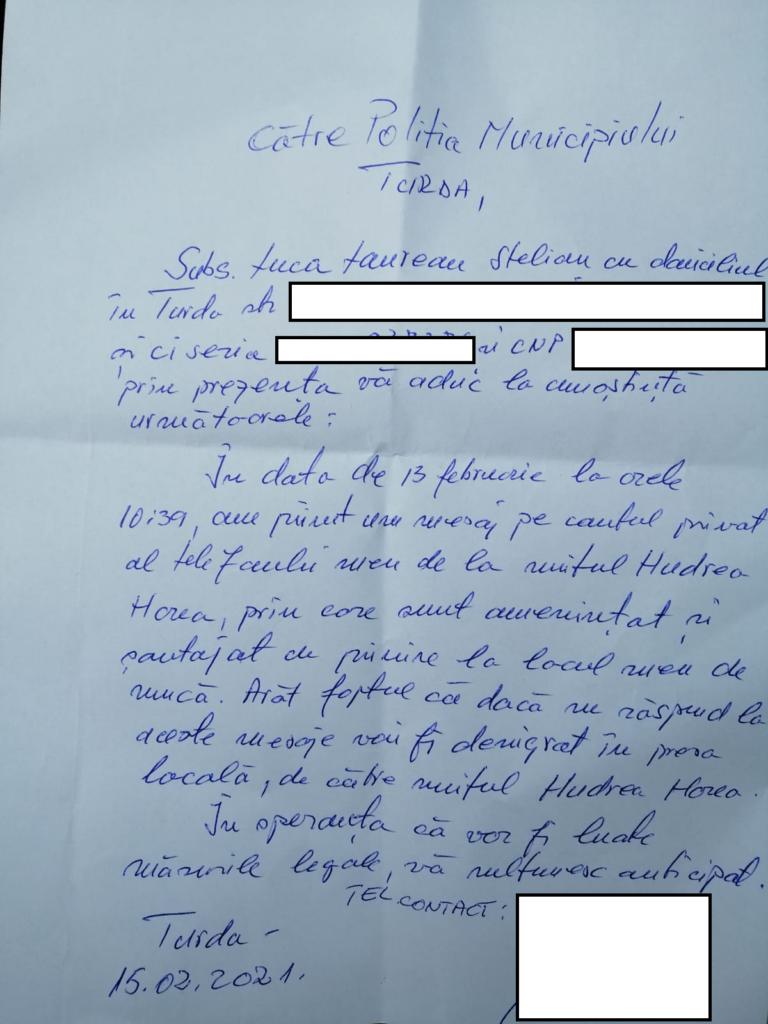 Către Poliția Municipiului
TURDA,
Subs. Țuca Taurean Stelian cu domiciliul
în Turda str
și ci seria și CNP
prin prezența vă aduc la cunoștiuță
următoarele:
În data de 13 februarie la orele
10:39, am primit un mesaj pe contul privat
al telefonului meu de la numitul Hudrea
Horea, prin care sunt amenințat și
șantajat cu privire la locul meu de
muncă. Arăt faptul că dacă nu răspund la
aceste mesaje voi fi denigrat în presa
locală, de către numitul Hudrea Horea.
În speranța că vor fi luate
măsurile legale, vă mulțumesc anticipat.
TEL CONTACT:
Turda -
15.02.2021.